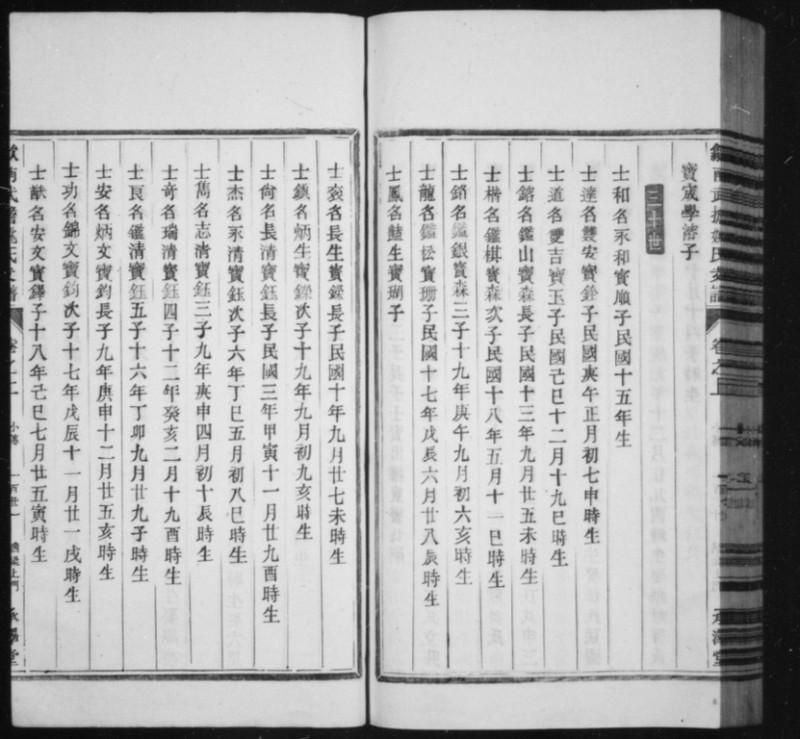 寶宬學濬子
三十世
士和名永和寶順子民國十五年生
士達名雙安寶銓子民國庚午正月初七申時生
士道名雙吉寶玉子民國己巳十二月十九巳時生
士鎔名鑑山寶森長子民國十三年九月廿五未時生
士楷名鑑棋寶森次子民國十八年五月十一巳時生
士銷名鑑銀寶森三子十九年庚午九月初六亥時生
士龍名鑑松寶珊子民國十七年戊辰六月廿八辰時生
士鳳名 生寶瑚子
卷之上
士 名長生寶鑅長子民國十年九月廿七未時生
士鎮名炳生寶鑅次子十九年九月初九亥時生
士尚名長清寶鈺長子民國三年甲寅十一月廿九酉時生
士杰名永清寶鈺次子六年丁巳五月初八巳時生
士萬名志清寶鈺三子九年庚申四月初十辰時生
士奇名瑞清寶鈺四子十二年癸亥二月十九酉時生
士良名鑑清寶鈺五子十六年丁卯九月廿九子時生
士安名炳文寶鈞長子九年庚申十二月廿五亥時生
士功名錦文寶鈞次子十七年戊辰十一月廿一戌時生
士猷名安文寶鐸子十八年己巳七月廿五寅時生